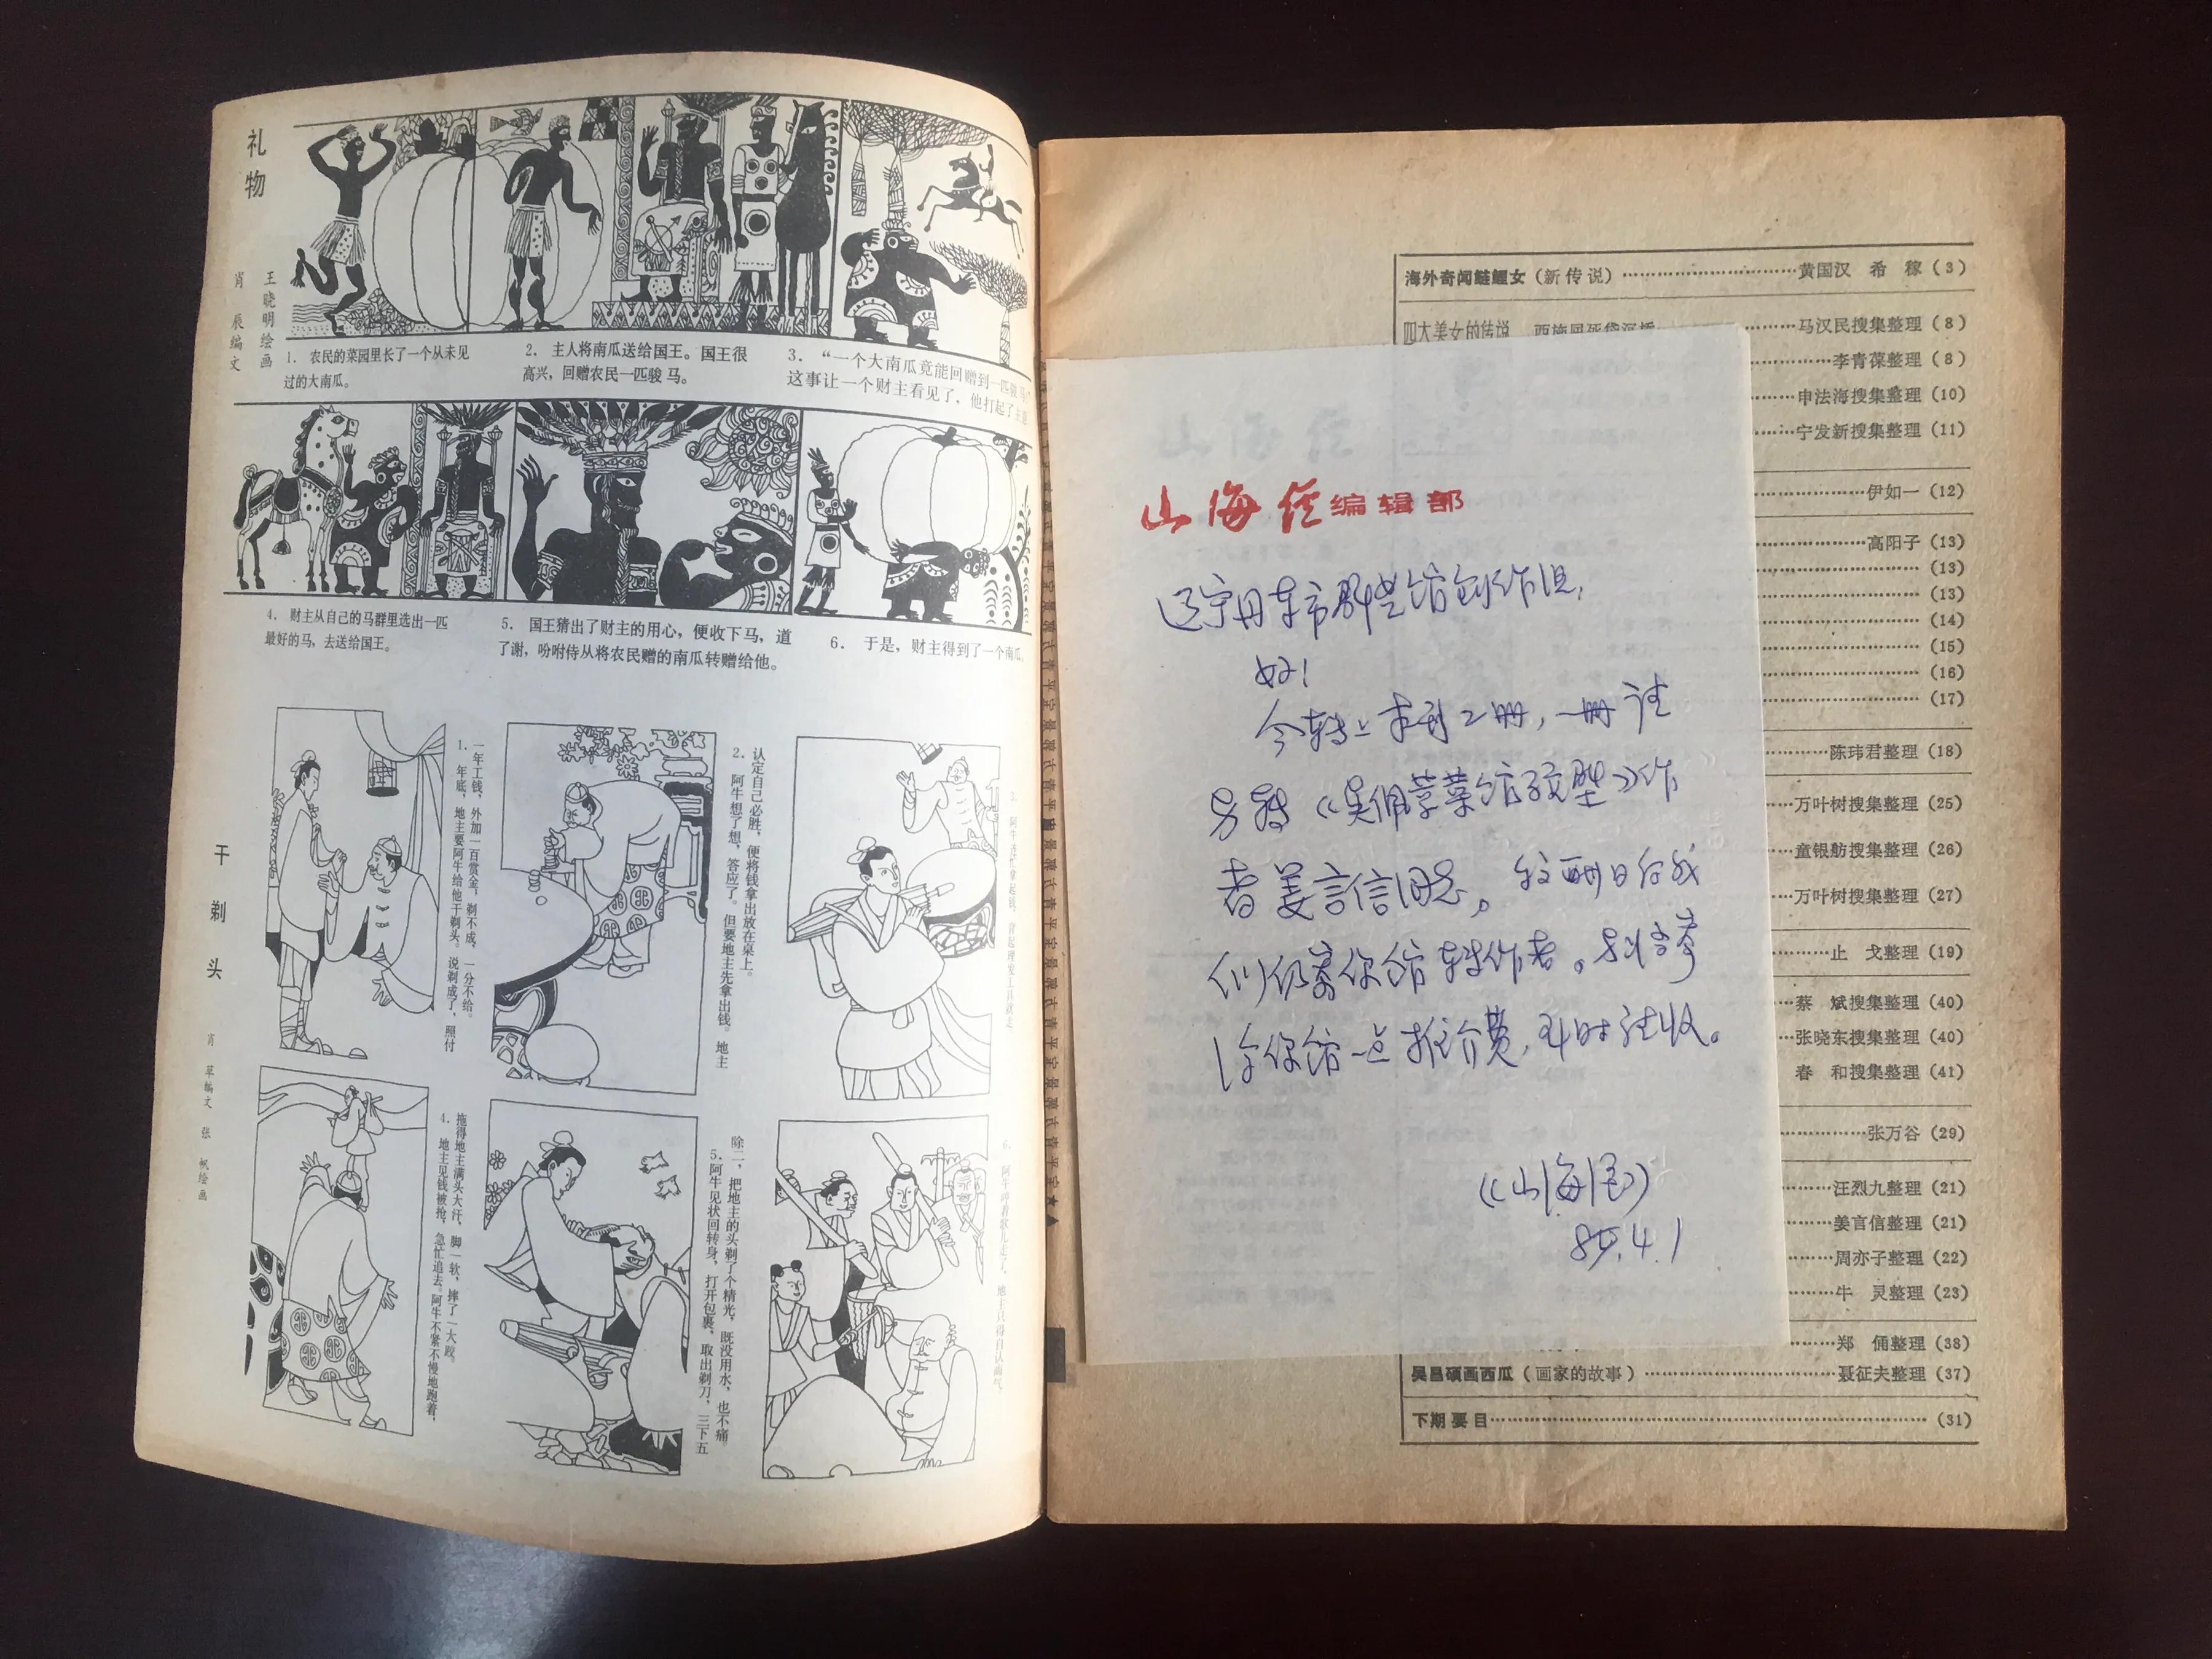 礼物
王晓明绘画
肖辰编文
1. 农民的菜园里长了一个从未见
过的大南瓜。
2. 主人将南瓜送给国王。国王很
高兴，回赠农民一匹骏马。
3. “一个大南瓜竟能回赠到一匹骏马”
这事让一个财主看见了，他打起了主意
4. 财主从自己的马群里选出一匹
最好的马，去送给国王。
5. 国王猜出了财主的用心，便收下马，道
了谢，吩咐侍从将农民赠的南瓜转赠给他。
6. 于是，财主得到了一个南瓜。
干剃头
肖草编文 张 帆绘画
1. 年底，地主要阿牛给他干剃头。说剃成了，照付
一年工钱，外加一百赏金，剃不成，一分不给。
2. 阿牛想了想，答应了。但要地主先拿出钱。地主
认定自己必胜，便将钱拿出放在桌上。
3. 阿牛连忙拿起钱，背起理发工具就走
4. 地主见钱被抢，急忙追去。阿牛不紧不慢地跑着，
拖得地主满头大汗，脚一软，摔了一大跤。
5. 阿牛见状回转身，打开包裹，取出剃刀，三下五
除二，把地主的头剃了个精光，既没用水，也不痛
6. 阿牛哼着歌儿走了，地主只得自认晦气。
山海经编辑部
辽宁丹东市群艺馆创作组：
好！
今转上本刊二册，一册请
另转《吴佩孚菜馆
者姜言信同志。
们仍寄你馆转作者。
给你馆一点推介费，
《山海经》
85.4.1
海外奇闻鲢鲤女（新传说）……黄国汉 希 稼（3）
四大美女的传说
……马汉民搜集整理（8）
……李青葆整理（8）
……申法海搜集整理（10）
……宁发新搜集整理（11）
……伊如一（12）
……高阳子（13）
……（13）
……（13）
……（14）
……（15）
……（16）
……（17）
……陈玮君整理（18）
……万叶树搜集整理（25）
……童银舫搜集整理（26）
……万叶树搜集整理（27）
……止 戈整理（19）
……蔡 斌搜集整理（40）
……张晓东搜集整理（40）
春 和搜集整理（41）
……张万谷（29）
……汪烈九整理（21）
……姜言信整理（21）
……周亦子整理（22）
……牛 灵整理（23）
……郑 俑整理（38）
吴昌硕画西瓜（画家的故事）……聂征夫整理（37）
下期要目……（31）